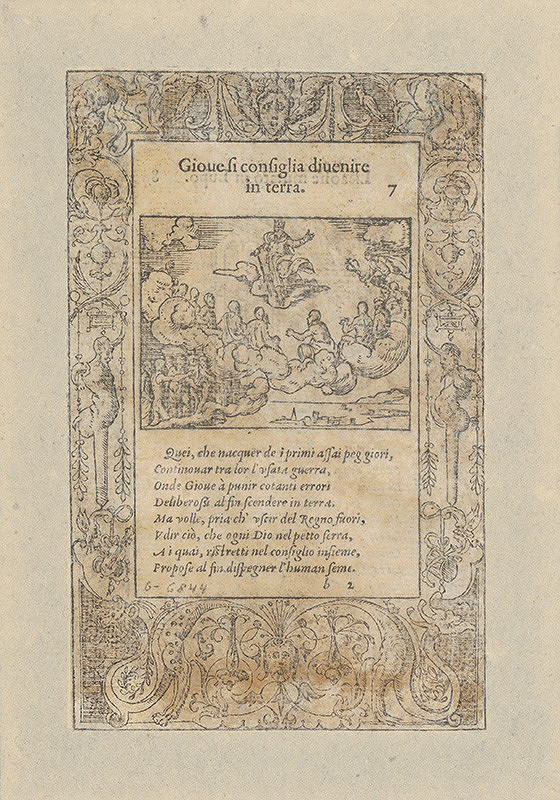 Gioue si consiglia di uenire
in terra.
7
Quei, che nacquer de i primi assai peggiori,
Continouar tra lor l'vsata guerra,
Onde Gioue à punir cotanti errori
Deliberosi al fin scendere in terra.
Ma volle, pria ch' vscir del Regno fuori,
Vdir ciò, che ogni Dio nel petto serra,
A i quai, ristretti nel consiglio insieme,
Propose al fin dispegner l'human seme.
6-6844
b 2